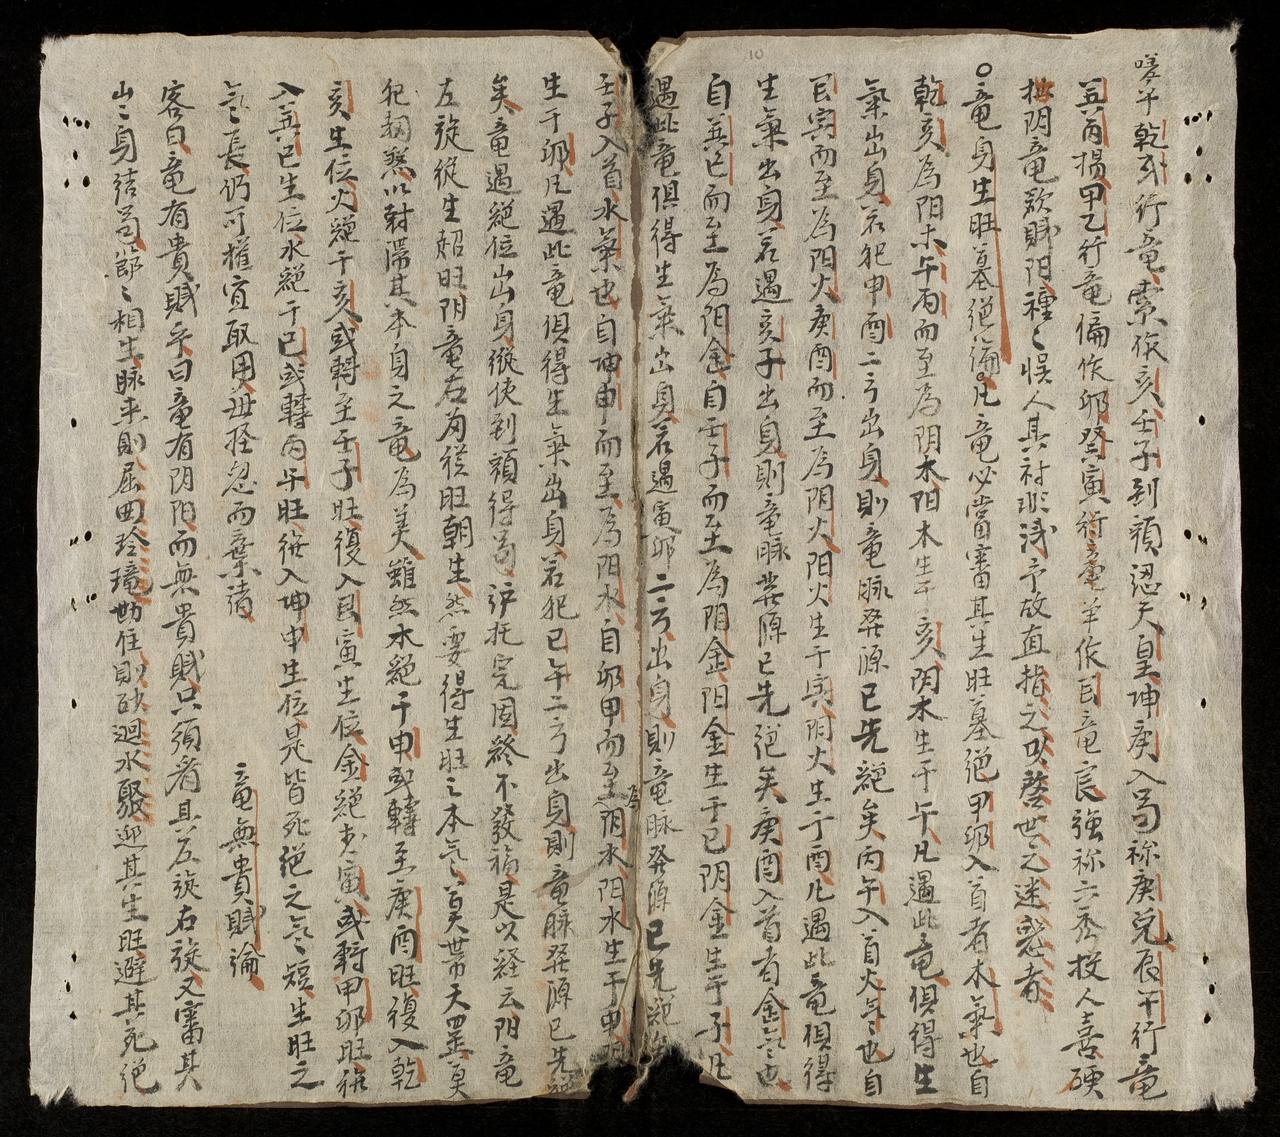 嗟乎乾亥行竜索依亥壬子到頭認天皇坤庚入首祢庚兌辰午行竜
巽丙揚甲乙行竜偏作卯癸寅行竜羊作艮竜良強祢六秀授人喜硬
拙阴竜欵賦阳種〻悮人其衬非浅予故直指之以啓世之迷惑者
○竜身生旺墓絕論○凡竜必當審其生旺墓絕甲卯入首者木氣也自
乾亥為阳木午丙而至為阴木阳木生于亥阴木生于午凡遇此竜俱得生
氣出身若犯申酉二方出身則竜脉癸源已先絕矣丙午入首火气也自
艮寅而至為阳火庚酉而至為阴火阳火生于寅阴火生于酉凡遇此竜俱得
生氣出身若遇亥子出身則竜脉癸源已先绝矣庚酉入首者金气也
自巽巳而至為阳金自壬子而至為阴金阳金生于巳阴金生于子凡
遇此竜俱得生氣出身若遇寅卯二方出身則竜脉癸源已先絕矣
壬子入首水氣也自坤申而至為阳水自卯甲而至為阴水阳水生于申阴
生于卯凡遇此竜俱得生氣出身若犯巳午二方出身則竜脉癸源已先絕
矣竜遇絕位出身縱使到頭得局沪托完固終不發福是以経云阴竜
左旋從生趨旺阴竜右旋從旺朝生然要得生旺之本气莫帯天罡莫
犯刼煞以尌滞其本身之竜為美雖然水絕于申或轉至庚酉旺復入乾
亥生位火絕于亥或轉至壬子旺復入艮寅生位金絕于寅或轉甲卯旺彺
入巽巳生位水絕于巳或轉丙午旺彺入坤申生位是皆死绝之气短生旺之
气長仍可權宜取用毋怪忽而棄諸
竜無貴賦論
客曰竜有貴賦乎曰竜有阴阳而無貴賦只須看其左旋右旋又審其
山〻身結局節〻相生脉来則屈曲玲瓏勒住則砂廻水聚迎其生旺避其死绝